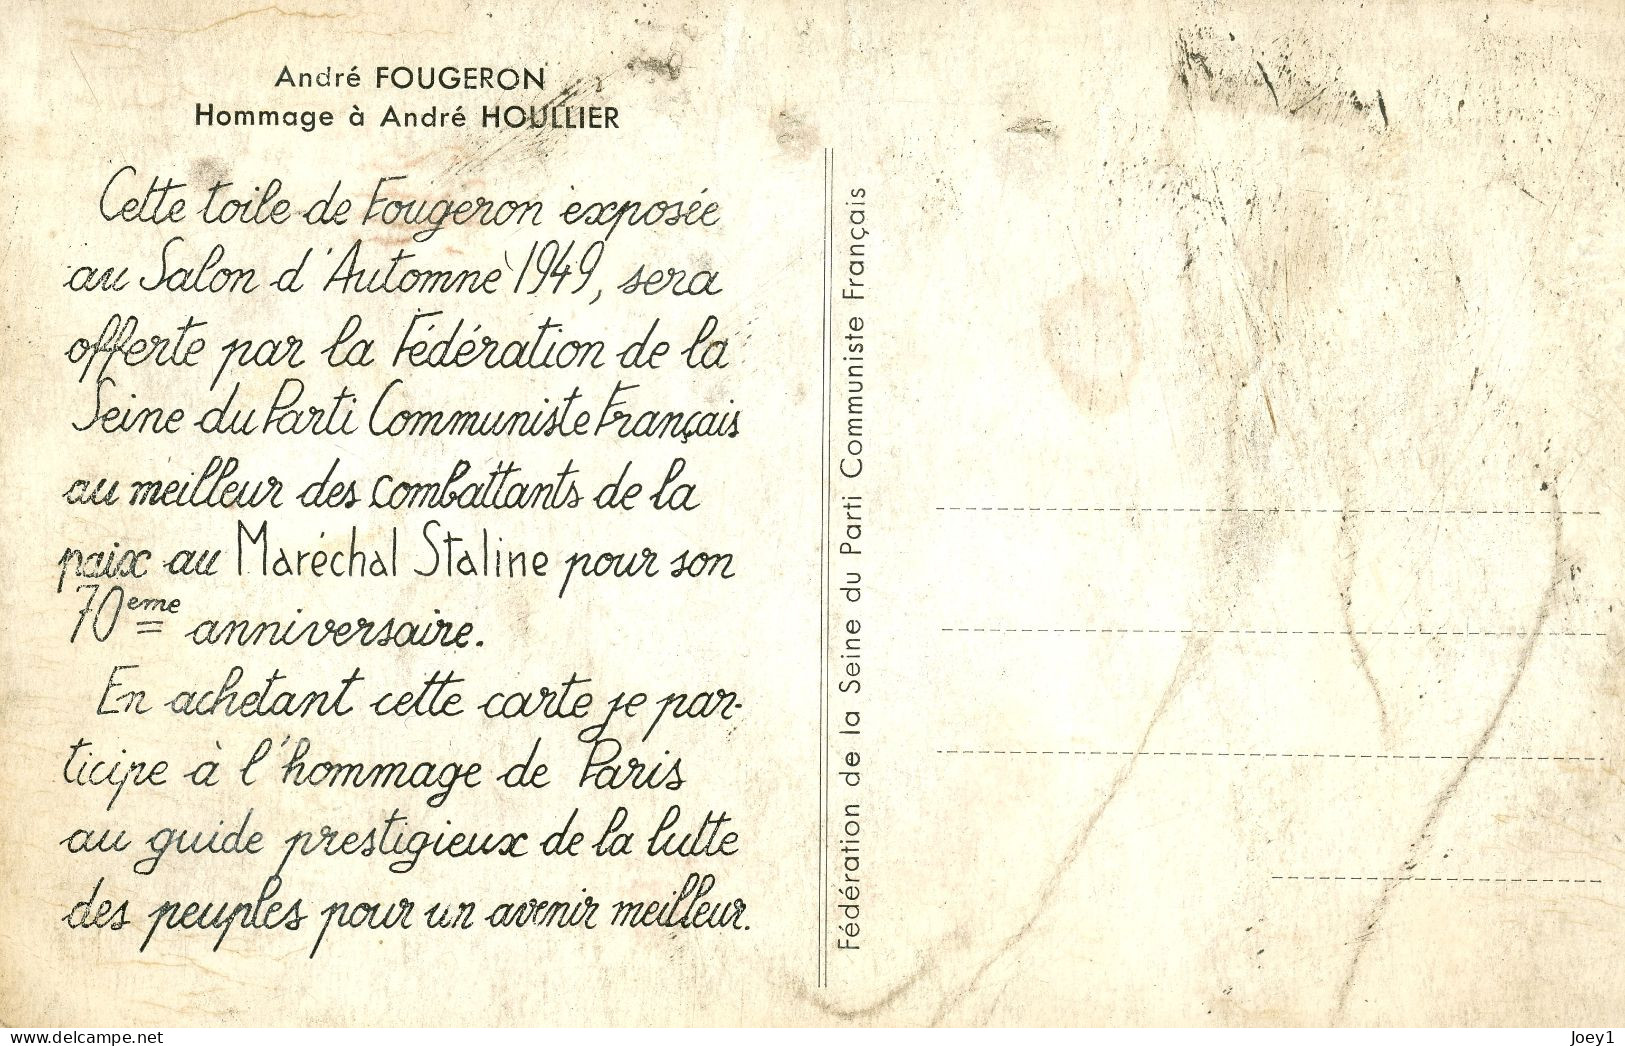 André FOUGERON
Hommage à André HOULLIER
Cette toile de Fougeron exposée
au Salon d'Automne 1949, sera
offerte par la Fédération de la
Seine du Parti Communiste Français
au meilleur des combattants de la
paix au Maréchal Staline pour son
70eme anniversaire.
En achetant cette carte je par-
ticipe à l'hommage de Paris
au guide prestigieux de la lutte
des peuples pour un avenir meilleur.
Fédération de la Seine du Parti Communiste Français
delcampe.net
Joey1